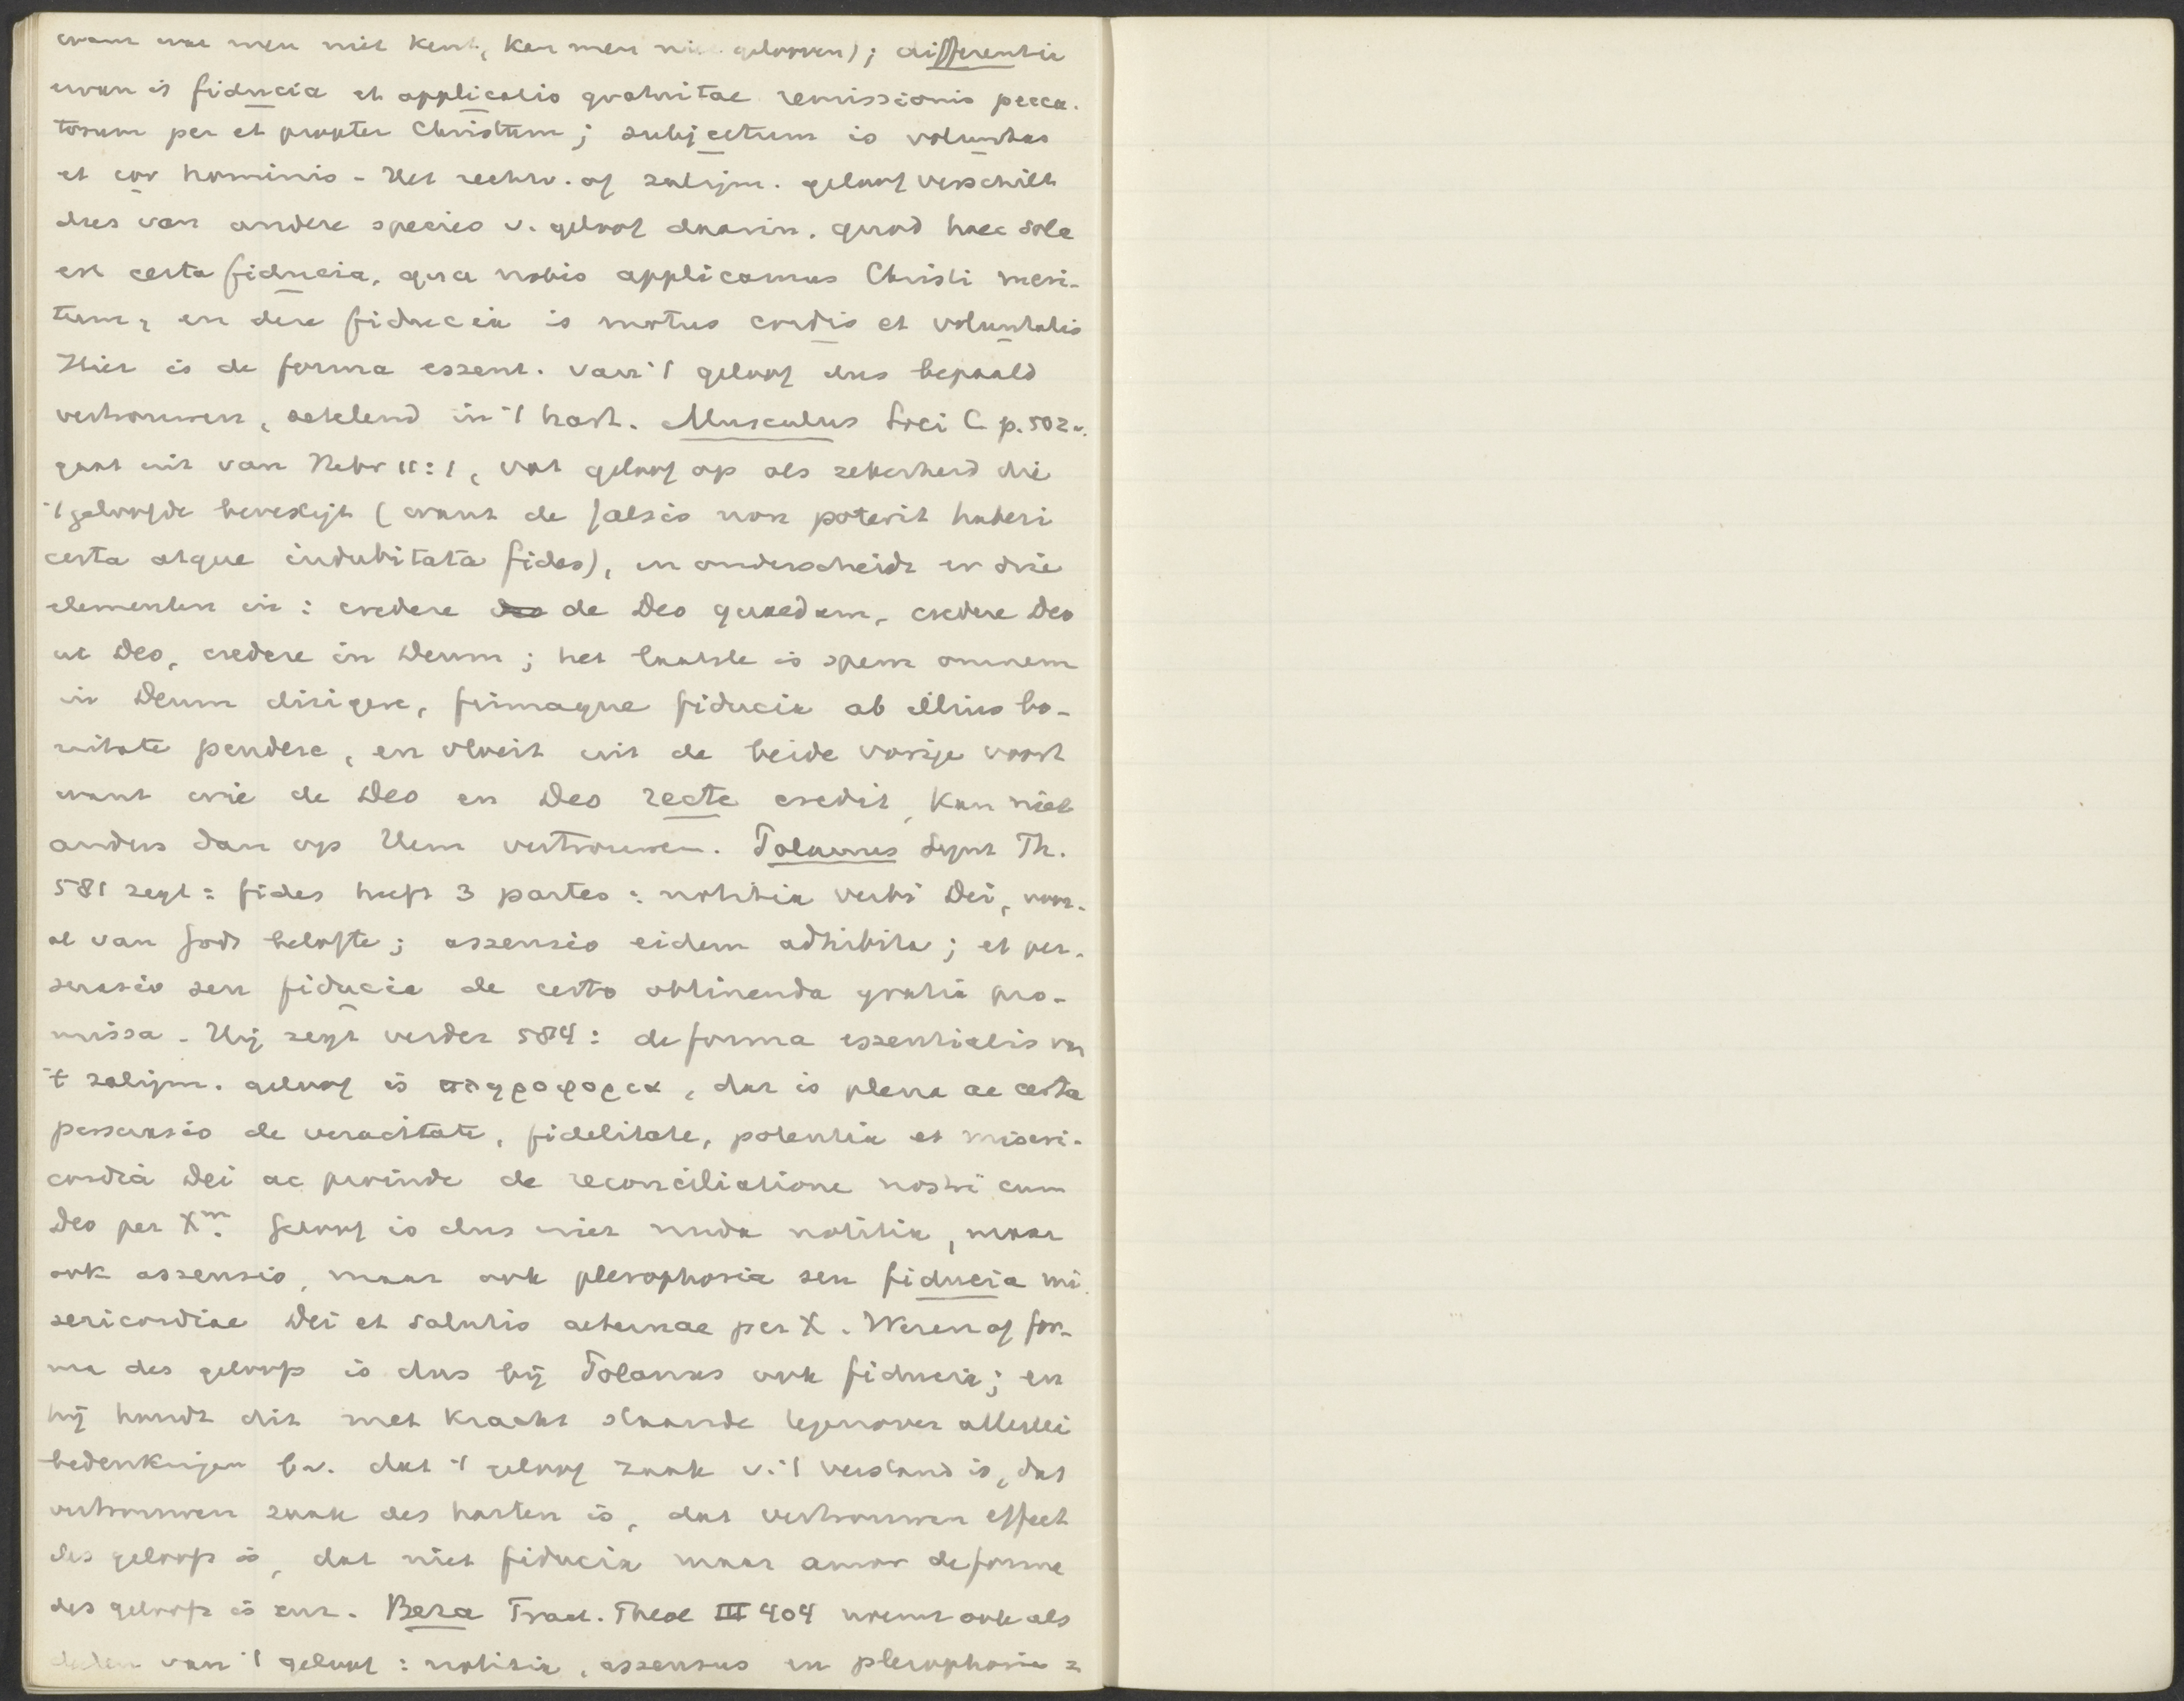 want wat men niet kent, kan men niet gelooven); differentia
ervan is fiducia et applicatio gratuitae remissionis pecca-
torum per et propter Christum; subjectum is voluntas
et cor hominis - Het rechtv. of zaligm. geloof verschilt
dus van andere species v. geloof daarin, quod haec sola
est certa fiducia, qua nobis applicamus Christi meri-
tum, en deze fiducia is motus cordis et voluntatis
Hier is de forma essent. van 't geloof dus bepaald
vertrouwen, zetelend in 't hart. Musculus Loci C. p. 502 v.
gaat uit van Hebr 11:1, vat geloof op als zekerheid die
't geloofde bevestigt (want de falsis non poterit haberi
certa atque indubitata fides), en onderscheidt er drie
elementen in: credere de Deo quaedam, credere Deo
ut Deo, credere in Deum; het laatste is spem omnem
in Deum dirigere, firmaque fiducia ab illius bo-
nitate pendere, en vloeit uit de beide vorige voort
want wie de Deo en Deo recte credit, kan niet
anders dan op Hem vertrouwen. Polanus Synt Th.
581 zegt: fides heeft 3 partes: notitia verbi Dei, voor-
al van Gods belofte; assensio eidem adhibita; et per-
suasio seu fiducia de certo obtinenda gratia pro-
missa - Hij zegt verder 584: de forma essentialis van
't zaligm. geloof is πληροφορια, dat is plena ac certa
persuasio de veracitate, fidelitate, potentia et miseri-
cordia Dei ac proinde de reconciliatione nostri cum
Deo per Xm. Geloof is dus niet nuda notitia, maar
ook assensio, maar ook plerophoria seu fiducia mi-
sericordiae Dei et salutis aeternae per X. Wezen of for-
ma des geloofs is dus bij Polanus ook fiducia; en
hij houdt dit met kracht staande tegenover allerlei
bedenkingen b.v. dat 't geloof zaak v. 't verstand is, dat
vertrouwen zaak des harten is, dat vertrouwen effect
des geloofs is, dat niet fiducia maar amor de forma
des geloofs is enz. Beza Tract. Theol III 404 noemt ook als
deelen van 't geloof: notitia, assensus en plerophoria =